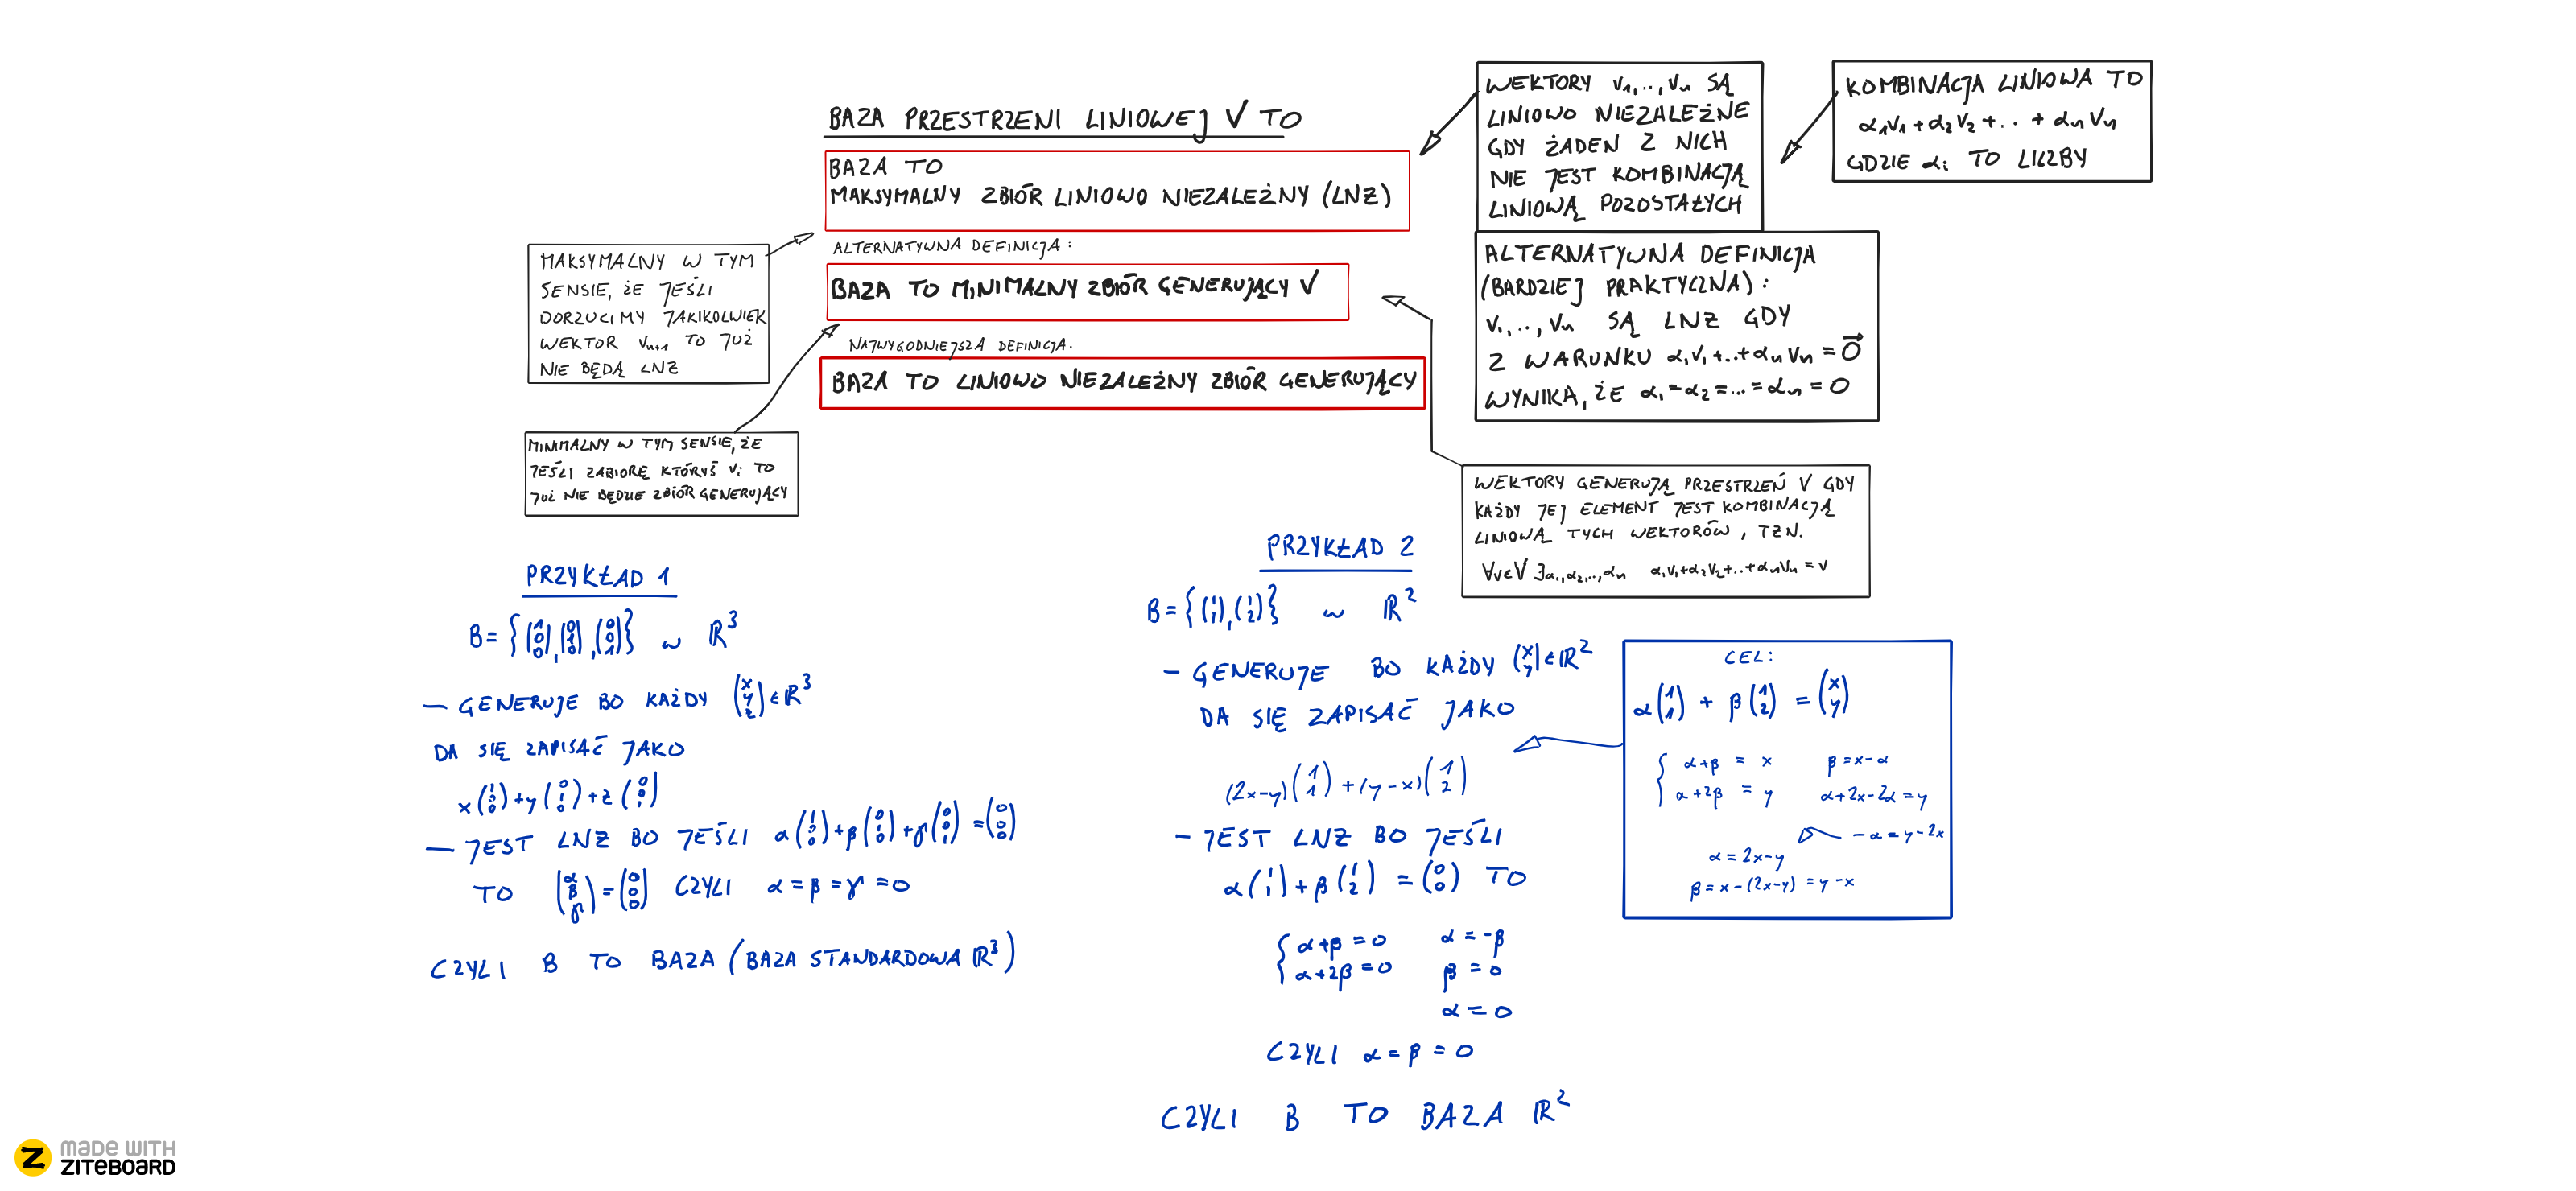 BAZA PRZESTRZENI LINIOWEJ V TO
BAZA TO
MAKSYMALNY ZBIÓR LINIOWO NIEZALEŻNY (LNZ)
ALTERNATYWNA DEFINICJA:
BAZA TO MINIMALNY ZBIÓR GENERUJĄCY V
NAJWYGODNIEJSZA DEFINICJA.
BAZA TO LINIOWO NIEZALEŻNY ZBIÓR GENERUJĄCY
MAKSYMALNY W TYM
SENSIE, ŻE JEŚLI
DORZUCIMY JAKIKOLWIEK
WEKTOR vₙ₊₁ TO JUŻ
NIE BĘDĄ LNZ
MINIMALNY W TYM SENSIE, ŻE
JEŚLI ZABIORĘ KTÓRYŚ vᵢ TO
JUŻ NIE BĘDZIE ZBIÓR GENERUJĄCY
WEKTORY v₁,..,vₙ SĄ
LINIOWO NIEZALEŻNE
GDY ŻADEN Z NICH
NIE JEST KOMBINACJĄ
LINIOWĄ POZOSTAŁYCH
KOMBINACJA LINIOWA TO
α₁v₁+α₂v₂+..+αₙvₙ
GDZIE αᵢ TO LICZBY
ALTERNATYWNA DEFINICJA
(BARDZIEJ PRAKTYCZNA):
v₁,..,vₙ SĄ LNZ GDY
Z WARUNKU α₁v₁+..+αₙvₙ=0⃗
WYNIKA, ŻE α₁=α₂=...=αₙ=0
WEKTORY GENERUJĄ PRZESTRZEŃ V GDY
KAŻDY JEJ ELEMENT JEST KOMBINACJĄ
LINIOWĄ TYCH WEKTORÓW, TZN.
∀v∈V ∃α₁,α₂,..,αₙ α₁v₁+α₂v₂+..+αₙvₙ=v
PRZYKŁAD 1
B={(1 0 0),(0 1 0),(0 0 1)} w ℝ³
— GENERUJE BO KAŻDY (x y z)∈ℝ³
DA SIĘ ZAPISAĆ JAKO
x(1 0 0)+y(0 1 0)+z(0 0 1)
— JEST LNZ BO JEŚLI α(1 0 0)+β(0 1 0)+γ(0 0 1)=(0 0 0)
TO (α β γ)=(0 0 0) CZYLI α=β=γ=0
CZYLI B TO BAZA (BAZA STANDARDOWA ℝ³)
PRZYKŁAD 2
B={(1 1),(1 2)} w ℝ²
- GENERUJE BO KAŻDY (x y)∈ℝ²
DA SIĘ ZAPISAĆ JAKO
(2x-y)(1 1)+(y-x)(1 2)
- JEST LNZ BO JEŚLI
α(1 1)+β(1 2)=(0 0) TO
{α+β=0 α=-β
α+2β=0 β=0
α=0
CZYLI α=β=0
CZYLI B TO BAZA ℝ²
CEL:
α(1 1)+β(1 2)=(x y)
{α+β=x β=x-α
α+2β=y α+2x-2α=y
-α=y-2x
α=2x-y
β=x-(2x-y)=y-x
Z MADE WITH
ZITEBOARD